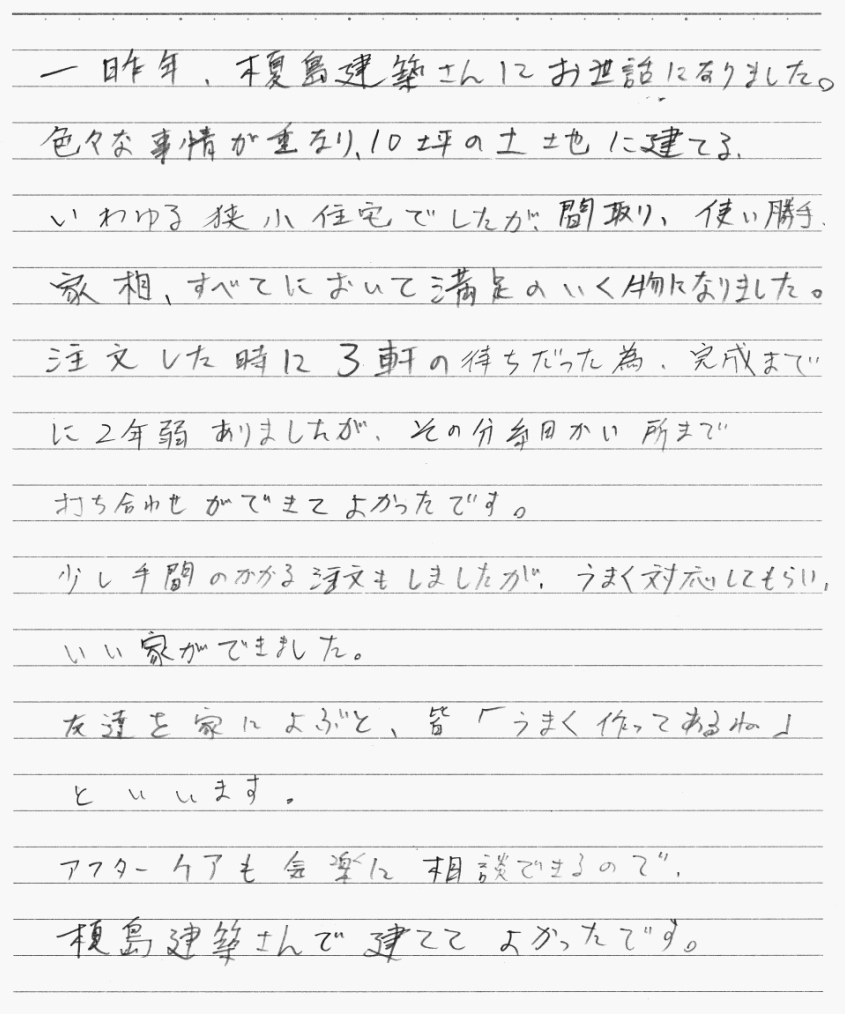 一昨年、榎島建築さんにお世話になりました。
色々な事情が重なり、10坪の土地に建てる、
いわゆる狭小住宅でしたが、間取り、使い勝手、
家相、すべてにおいて満足のいく物になりました。
注文した時に3軒の待ちだった為、完成まで
に2年弱ありましたが、その分細かい所まで
打ち合わせができてよかったです。
少し手間のかかる注文もしましたが、うまく対応してもらい、
いい家ができました。
友達を家によぶと、皆「うまく作ってあるね」
といいます。
アフターケアも気楽に相談できるので、
榎島建築さんで建ててよかったです。